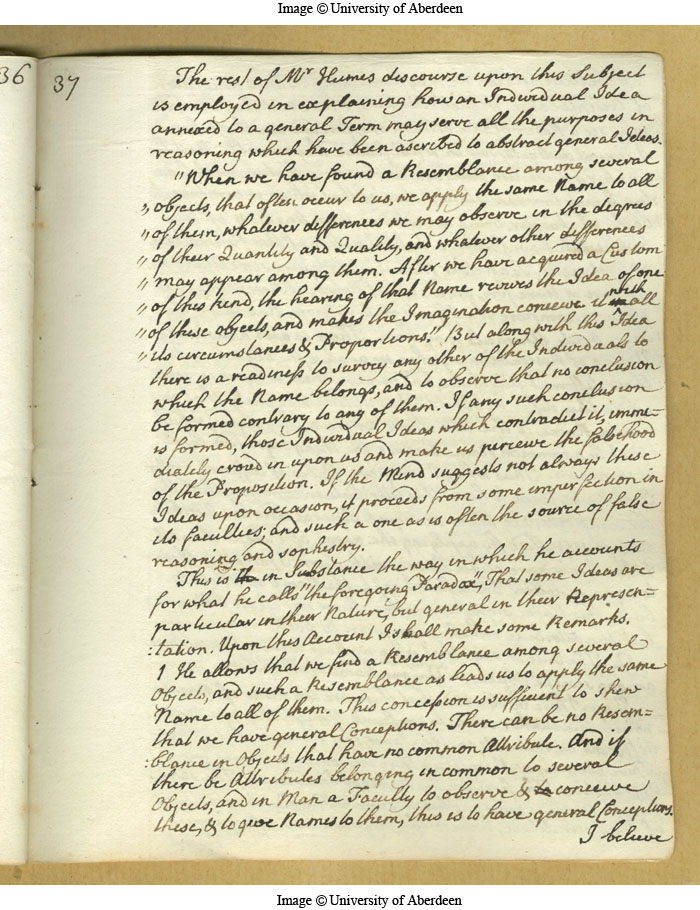 Image © University of Aberdeen
36
37
The rest of Mr Humes discourse upon this Subject
is employed in explaining how an Individual Idea
annexed to a general Term may serve all the purposes in
reasoning which have been ascribed to abstract general Ideas.
"When we have found a Resemblance among several
" objects, that often occur to us, we apply the same Name to all
" of them, whatever differences we may observe in the degrees
" of their Quantity and Quality, and whatever other differences
" may appear among them. After we have acquired a Custom
" of this kind, the hearing of that Name revives the Idea of one
" of these objects, and makes the Imagination conceive it with all
" its circumstances & Proportions." But along with this Idea
there is a readiness to survey any other of the Individuals to
which the Name belongs, and to observe that no conclusion
be formed contrary to any of them. If any such conclusion
is formed, those Individual Ideas which contradict it, imme=
diately croud in upon us and make us perceive the falsehood
of the Proposition. If the Mind suggests not always these
Ideas upon occasion, it proceeds from some imperfection in
its faculties; and such a one as is often the source of false
reasoning and sophestry.
This is in Substance the way in which he accounts
for what he calls "the foregoing Paradox", That some Ideas are
particular in their Nature, but general in their Represen=
:tation. Upon this Account I shall make some Remarks.
1 He allows that we find a Resemblance among several
Objects, and such a Resemblance as leads us to apply the same
Name to all of them. This concession is sufficient to shew
that we have general Conceptions. There can be no Resem=
:blance in Objects that have no common Attribute. And if
there be Attributes belonging in common to several
Objects, and in Man a Faculty to observe & conceive
these, & to give Names to them, this is to have general Conceptions.
I believe
Image © University of Aberdeen